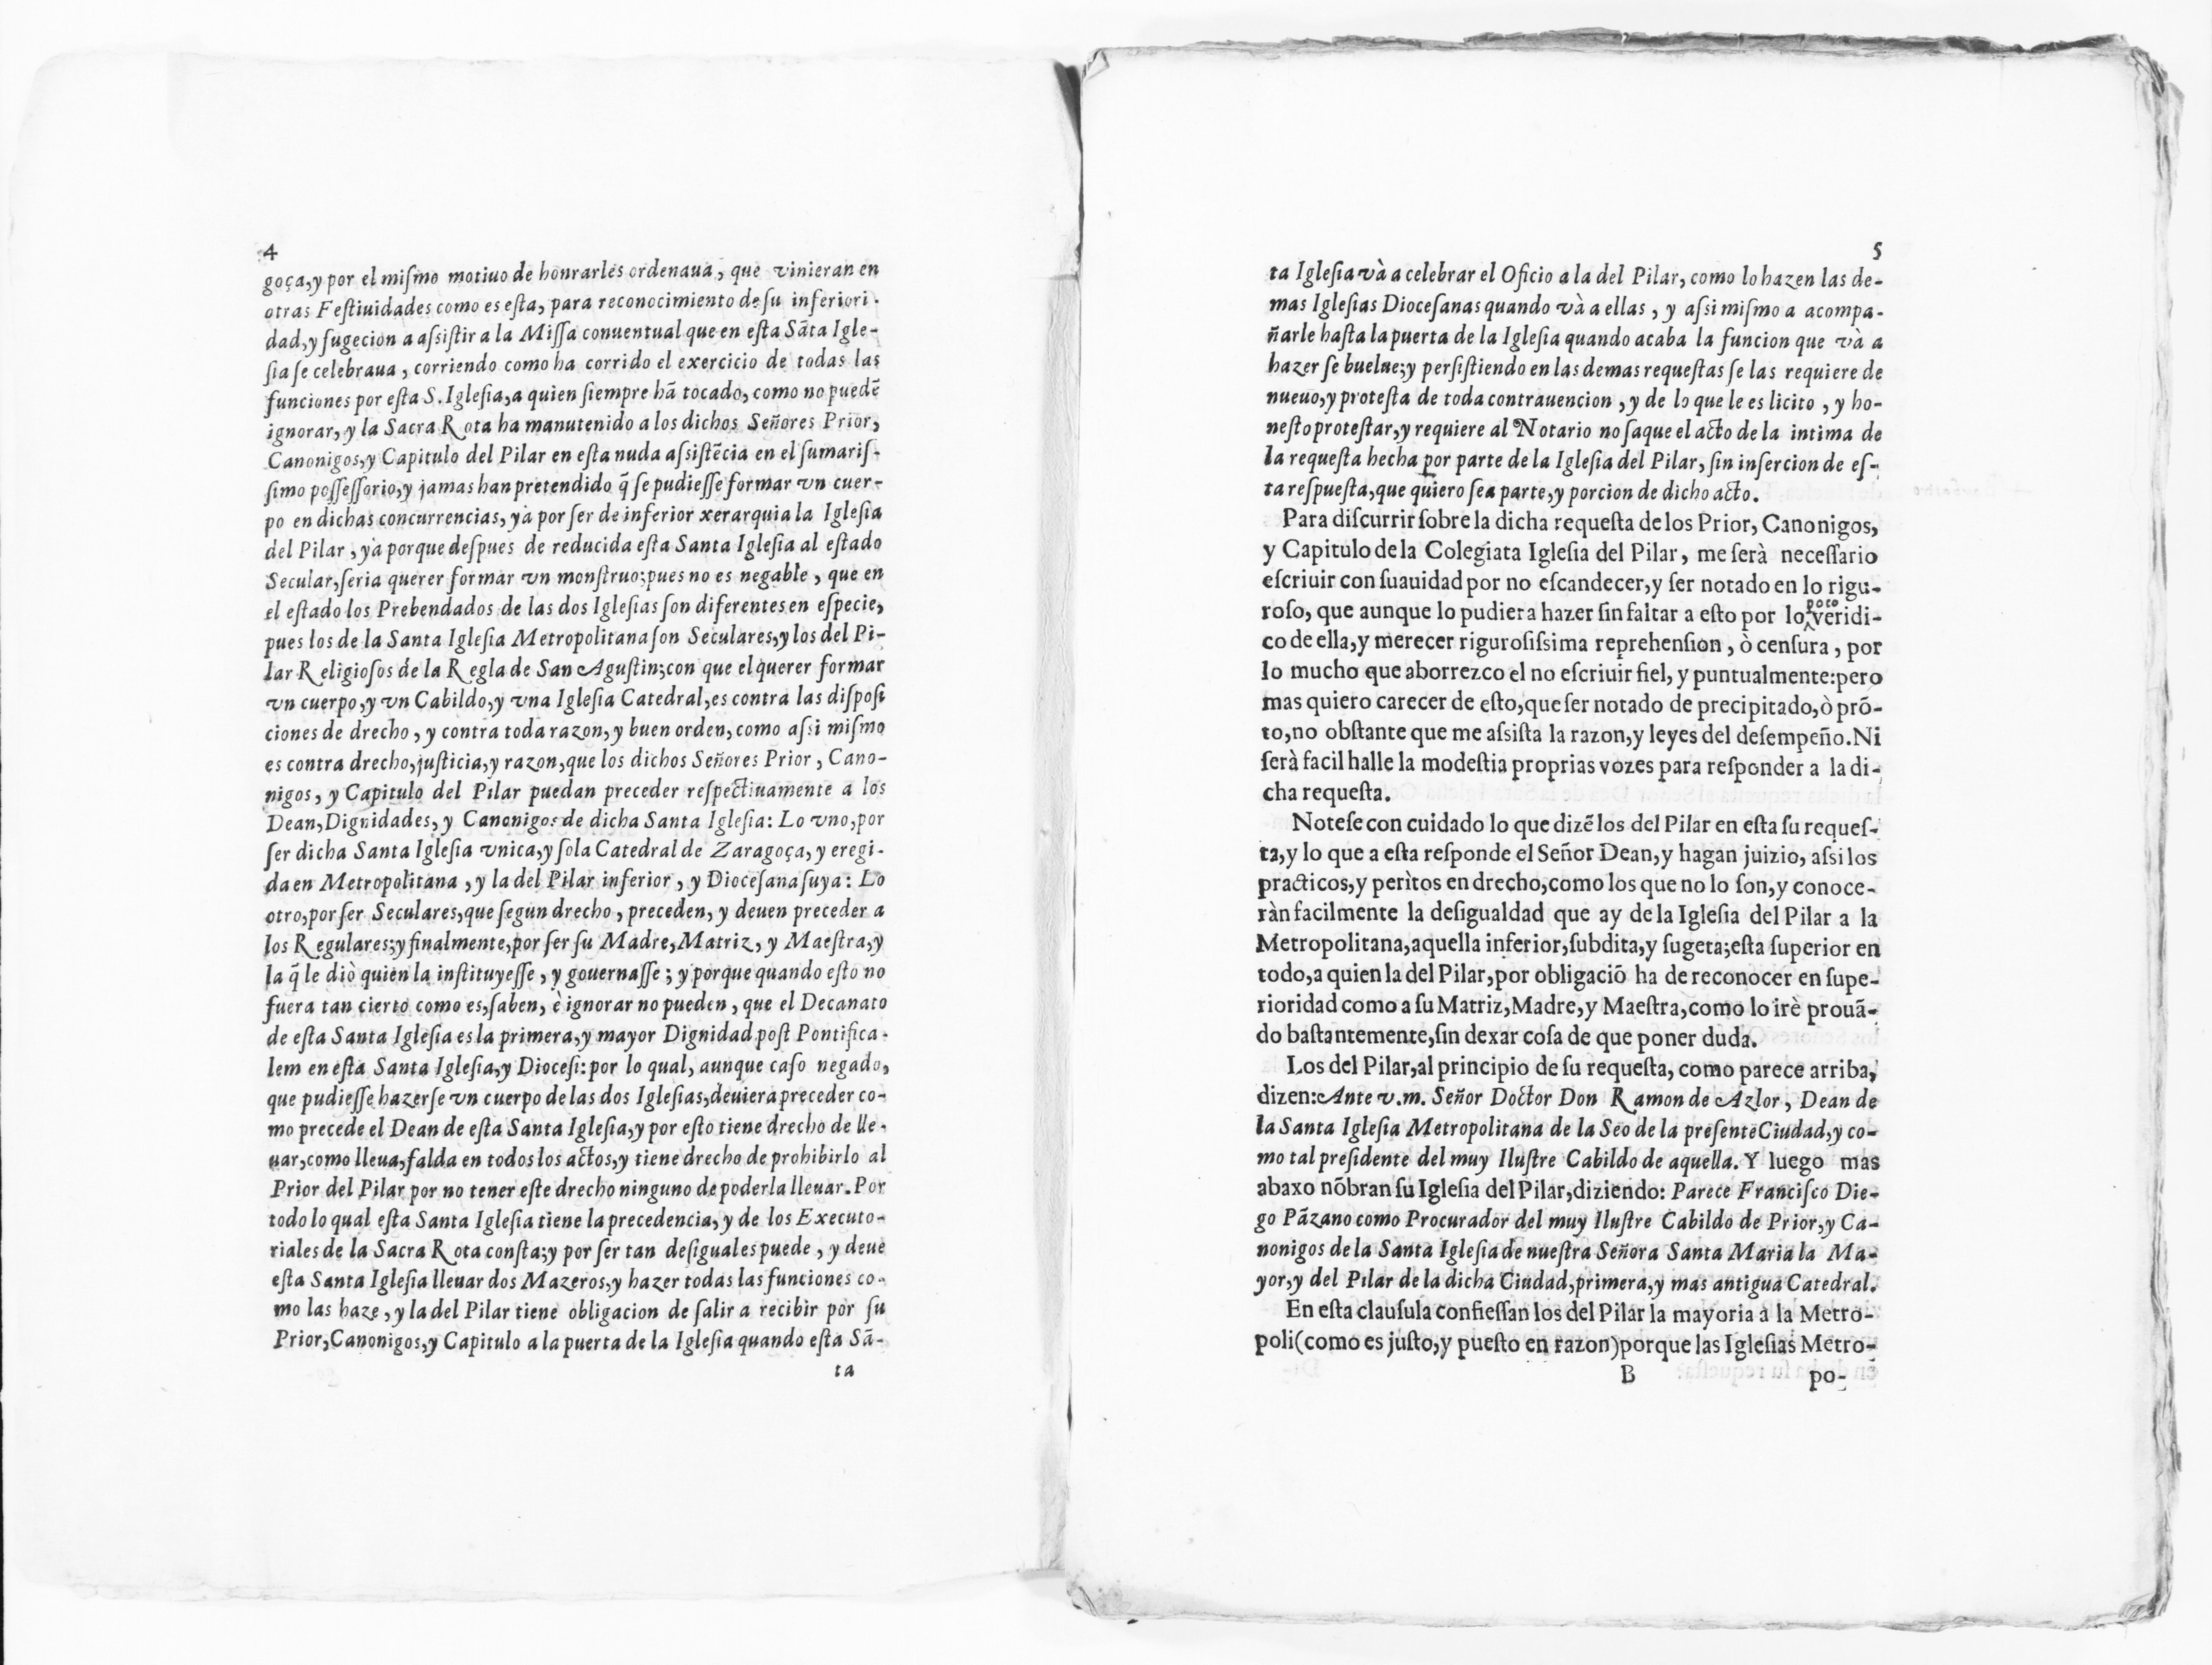 4
goça,y por el miſmo motiuo de honrarles ordenaua, que vinieran en
otras Feſtiuidades como es eſta, para reconocimiento de ſu inferiori-
dad,y ſugecion a aſsiſtir a la Miſſa conuentual que en eſta Sãta Igle-
ſia ſe celebraua, corriendo como ha corrido el exercicio de todas las
funciones por eſta S.Igleſia,a quien ſiempre hã tocado, como no puedẽ
ignorar, y la Sacra Rota ha manutenido a los dichos Señores Prior,
Canonigos,y Capitulo del Pilar en eſta nuda aſsiſtẽcia en el ſumariſ-
ſimo poſſeſſorio,y jamas han pretendido q̃ ſe pudieſſe formar vn cuer-
po en dichas concurrencias, yà por ſer de inferior xerarquia la Igleſia
del Pilar, yà porque deſpues de reducida eſta Santa Igleſia al eſtado
Secular,ſeria querer formar vn monſtruo;pues no es negable, que en
el eſtado los Prebendados de las dos Igleſias ſon diferentes en eſpecie,
pues los de la Santa Igleſia Metropolitana ſon Seculares,y los del Pi-
lar Religioſos de la Regla de San Aguſtin;con que el querer formar
vn cuerpo,y vn Cabildo,y vna Igleſia Catedral,es contra las diſpoſi
ciones de drecho, y contra toda razon,y buen orden, como aſsi miſmo
es contra drecho,juſticia,y razon,que los dichos Señores Prior, Cano-
nigos, y Capitulo del Pilar puedan preceder reſpectiuamente a los
Dean,Dignidades, y Canonigos de dicha Santa Igleſia: Lo vno,por
ſer dicha Santa Igleſia vnica,y ſola Catedral de Zaragoça, y eregi-
da en Metropolitana, y la del Pilar inferior, y Dioceſana ſuya: Lo
otro,por ſer Seculares,que ſegun drecho, preceden, y deuen preceder a
los Regulares;y finalmente,por ſer ſu Madre,Matriz, y Maeſtra,y
la q̃ le diò quien la inſtituyeſſe, y gouernaſſe; y porque quando eſto no
fuera tan cierto como es,ſaben, è ignorar no pueden, que el Decanato
de eſta Santa Igleſia es la primera,y mayor Dignidad poſt Pontifica-
lem en eſta Santa Igleſia,y Dioceſi:por lo qual, aunque caſo negado,
que pudieſſe hazerſe vn cuerpo de las dos Igleſias,deuiera preceder co-
mo precede el Dean de eſta Santa Igleſia,y por eſto tiene drecho de lle-
uar,como lleua,falda en todos los actos,y tiene drecho de prohibirlo al
Prior del Pilar por no tener eſte drecho ninguno de poderla lleuar. Por
todo lo qual eſta Santa Igleſia tiene la precedencia, y de los Executo-
riales de la Sacra Rota conſta;y por ſer tan deſiguales puede, y deue
eſta Santa Igleſia lleuar dos Mazeros,y hazer todas las funciones co-
mo las haze, y la del Pilar tiene obligacion de ſalir a recibir por ſu
Prior,Canonigos,y Capitulo a la puerta de la Igleſia quando eſta Sã-
ta
5
ta Igleſia và a celebrar el Oficio a la del Pilar, como lo hazen las de-
mas Igleſias Dioceſanas quando và a ellas, y aſsi miſmo a acompa-
ñarle haſta la puerta de la Igleſia quando acaba la funcion que và a
hazer ſe buelue;y perſiſtiendo en las demas requeſtas ſe las requiere de
nueuo,y proteſta de toda contrauencion, y de lo que le es licito, y ho-
neſto proteſtar,y requiere al Notario no ſaque el acto de la intima de
la requeſta hecha por parte de la Igleſia del Pilar, ſin inſercion de eſ-
ta reſpueſta,que quiero ſea parte,y porcion de dicho acto.
Para diſcurrir ſobre la dicha requeſta de los Prior, Canonigos,
y Capitulo de la Colegiata Igleſia del Pilar, me ſerà neceſſario
eſcriuir con ſuauidad por no eſcandecer,y ſer notado en lo rigu-
roſo, que aunque lo pudiera hazer ſin faltar a eſto por lo poco veridi-
co de ella,y merecer riguroſiſsima reprehenſion, ò cenſura, por
lo mucho que aborrezco el no eſcriuir fiel, y puntualmente:pero
mas quiero carecer de eſto,que ſer notado de precipitado,ò prõ-
to,no obſtante que me aſsiſta la razon,y leyes del deſempeño. Ni
ſerà facil halle la modeſtia proprias vozes para reſponder a la di-
cha requeſta.
Noteſe con cuidado lo que dizẽ los del Pilar en eſta ſu requeſ-
ta,y lo que a eſta reſponde el Señor Dean,y hagan juizio, aſsi los
practicos,y perìtos en drecho,como los que no lo ſon,y conoce-
ràn facilmente la deſigualdad que ay de la Igleſia del Pilar a la
Metropolitana,aquella inferior,ſubdita,y ſugeta;eſta ſuperior en
todo,a quien la del Pilar,por obligaciõ ha de reconocer en ſupe-
rioridad como a ſu Matriz,Madre,y Maeſtra,como lo irè prouã-
do baſtantemente,ſin dexar coſa de que poner duda.
Los del Pilar,al principio de ſu requeſta, como parece arriba,
dizen:Ante v.m. Señor Doctor Don Ramon de Azlor, Dean de
la Santa Igleſia Metropolitana de la Seo de la preſente Ciudad,y co-
mo tal preſidente del muy Iluſtre Cabildo de aquella. Y luego mas
abaxo nõbran ſu Igleſia del Pilar,diziendo: Parece Franciſco Die-
go Pãzano como Procurador del muy Iluſtre Cabildo de Prior,y Ca-
nonigos de la Santa Igleſia de nueſtra Señora Santa Maria la Ma-
yor,y del Pilar de la dicha Ciudad,primera,y mas antigua Catedral.
En eſta clauſula confieſſan los del Pilar la mayoria a la Metro-
poli(como es juſto,y pueſto en razon)porque las Igleſias Metro-
B po-